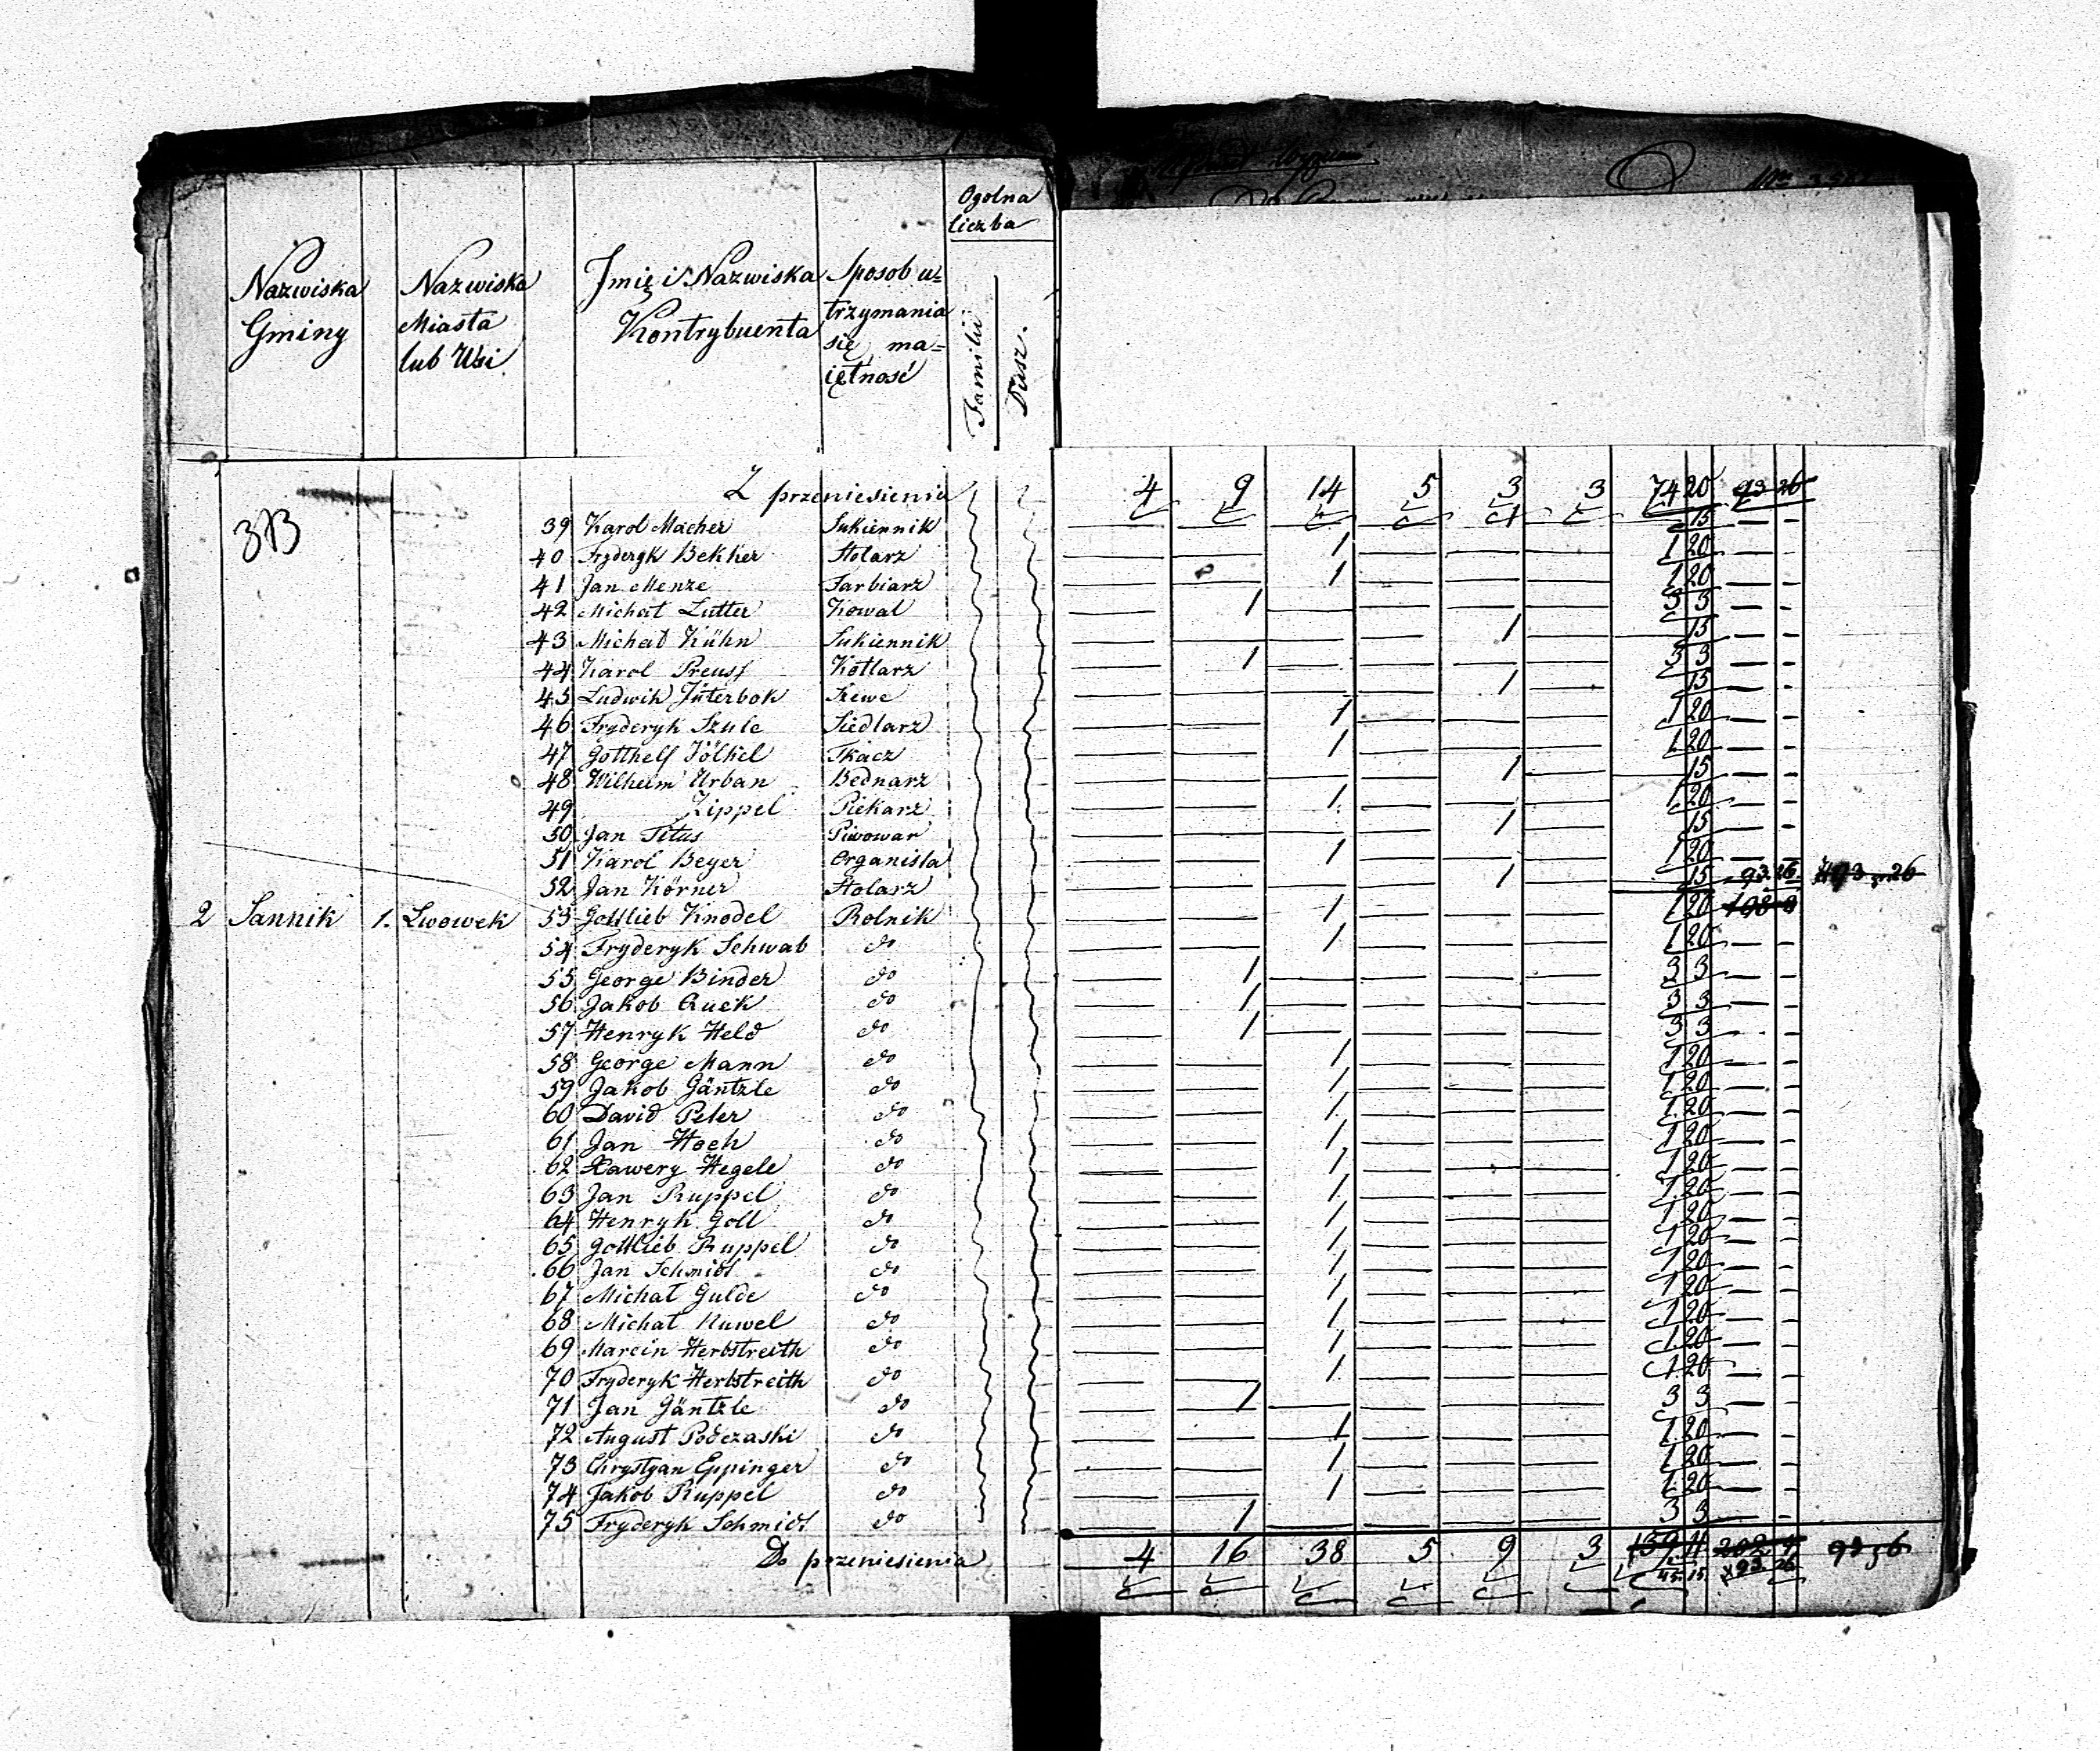 Nazwiska Gminy
Nazwiska Miasta lub Wsi
Jmię i Nazwiska Kontrybuenta
Sposob u= trzymania się ma= iętność
Ogolna liczba
Familii
Dusz.
Z przeniesienia 4 9 14 5 3 3 74 20 93 26
39 Karol Macher Sukiennik 1 15
40 Fryderyk Bekker Stolarz 1 1 20
41 Jan Menze Farbiarz 1 1 20
42 Michał Lutter Kowal 1 3 3
43 Michał Kühn Sukiennik 1 15
44 Karol Preuss Kotlarz 1 3 3
45 Ludwik Jüterbok Szewc 1 15
46 Fryderyk Szulc Siedlarz 1 1 20
47 Gotthelf Völkel Tkacz 1 1 20
48 Wilhelm Urban Bednarz 1 15
49 Zippel Piekarz 1 1 20
50 Jan Titus Piwowar 1 15
51 Karol Beyer Organista 1 1 20
52 Jan Körner Stolarz 1 15 93. 26.
2 Sannik 1. Lwowek 53 Gottlieb Knodel Rolnik 1 1 20
54 Fryderyk Schwab do 1 1 20
55 George Binder do 1 3 3
56 Jakob Quek do 1 3 3
57 Henryk Held do 1 3 3
58 George Mann do 1 1 20
59 Jakob Gäntzle do 1 1 20
60 David Peter do 1 1 20
61 Jan Hoch do 1 1 20
62 Xawery Hegele do 1 1 20
63 Jan Ruppel do 1 1 20
64 Henryk Goll do 1 1 20
65 Gottlieb Ruppel do 1 1 20
66 Jan Schmidt do 1 1 20
67 Michał Gulde do 1 1 20
68 Michał Nuwel do 1 1 20
69 Marcin Herbstreith do 1 1 20
70 Fryderyk Herbstreith do 1 1 20
71 Jan Gäntzle do 1 3 3
72 August Podczaski do 1 1 20
73 Chrystyan Eppinger do 1 1 20
74 Jakob Ruppel do 1 1 20
75 Fryderyk Schmidt do 1 3 3
Do przeniesienia 4 16 38 5 9 3 159 11
45 15 93 26